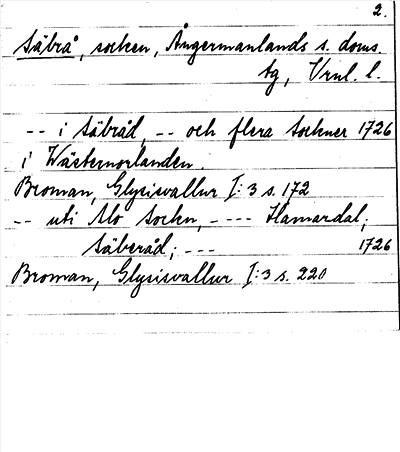 2.
Säbrå, socken, Ångermanlands s. doms.
tg, Vrnl. l.
-- i Säbråd, -- och flera Sockner 1726
i Wästernorlanden.
Broman, Glysisvallur I:3 s. 172
-- uti Alo Sockn, ---- Hamardal;
Säberåd; --- 1726
Broman, Glysisvallur I:3 s. 220